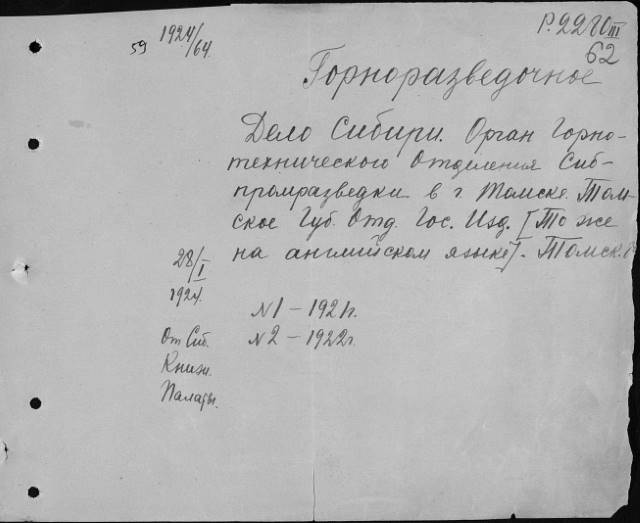 59 1924/64.
Р.2280 III
62
Горноразведочное
Дело Сибири. Орган Горно-
технического Отделения Сиб-
промразведки в г. Томске. Том-
ское Губ. Отд. Гос. Изд. [То же
на английском языке]. Томск.
28/I
1924.
№1 - 1921г.
№2 - 1922г.
От Сиб.
Книжн.
Палаты.